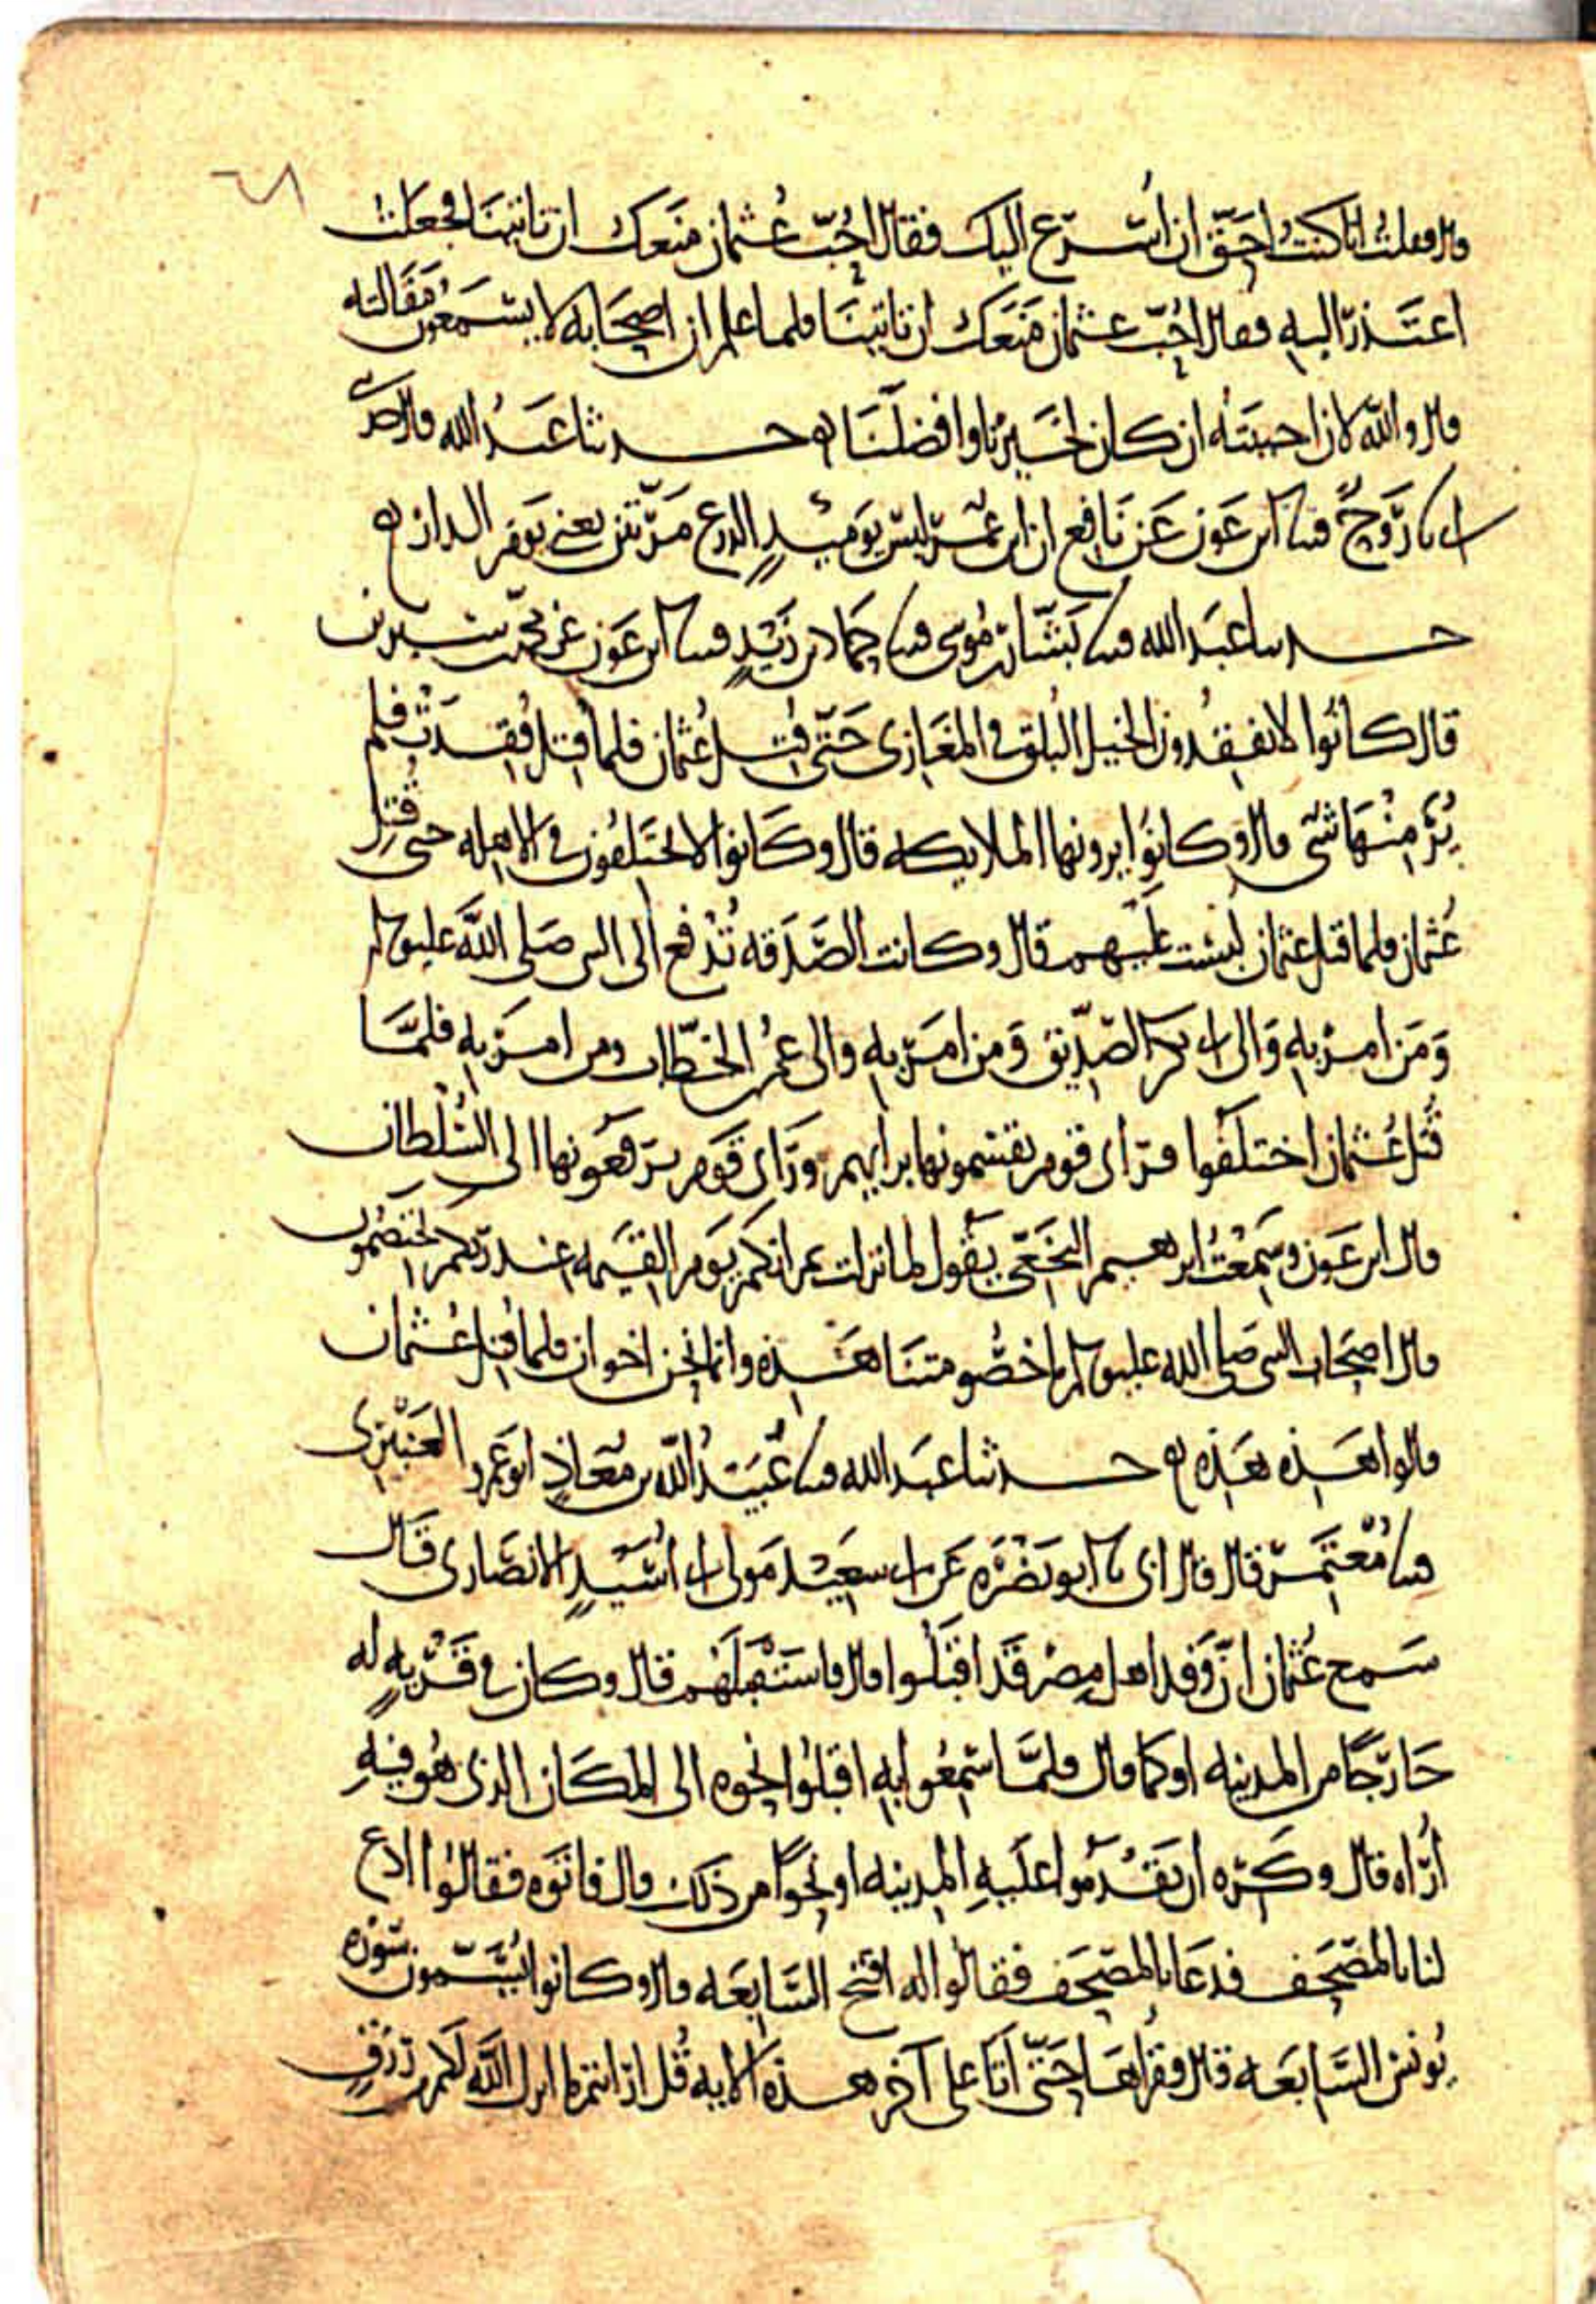 ٦٨
قال فقلت انا كنت احق ان اسرع اليك فقال احب عثمان منعك ان تاتينا فجعلت
اعتذر اليه فقال احب عثمان منعك ان تاتينا فلما علم ان اصحابه لا يسمعون مقالته
قال والله لان احببته ان كان لخيرنا وافضلنا حدثنا عبد الله قال حدثني
ابي نا روح قثنا ابن عون عن نافع ان ابن عمر لبس يوميذ الدرع مرتين يعني يوم الدار
حدثنا عبد الله قثنا بشار بن موسى قثنا حماد بن زيد قثنا ابن عون عن محمد بن سيرين
قال كانوا لا يفقدون الخيل البلق في المغازي حتى قتل عثمان فلما قتل فقدت فلم
ير منها شي قال وكانوا يرونها الملايكه قال وكانوا لا يختلفون في الاهله حتى قتل
عثمان فلما قتل عثمان لبست عليهم قال وكانت الصدقه تدفع الى النبي صلى الله عليه وسلم
ومن امر به والى ابي بكر الصديق ومن امر به والى عمر الخطاب ومن امر به فلما
قتل عثمان اختلفوا فراى قوم يقسمونها برايهم وراى قوم يرفعونها الى السلطان
قال ابن عون وسمعت ابرهيم النخعي يقول لما نزلت ثم انكم يوم القيمه عند ربكم تختصمون
قال اصحاب النبي صلى الله عليه وسلم ما خصومتنا هذه وانما نحن اخوان فلما قتل عثمان
قالوا هذه هذه حدثنا عبد الله قثنا عبيد الله بن معاذ ابو عمرو العنبري
قثنا معتمر قال قال ابي نا ابو نضره عن ابي سعيد مولى ابي اسيد الانصاري قال
سمع عثمان ان وفد اهل مصر قد اقبلوا قال فاستقبلهم قال وكان في قريه له
خارجا من المدينه او كما قال فلما سمعوا به اقبلوا نحوه الى المكان الذي هو فيه
اراه قال وكره ان يقدموا عليه المدينه او نحوا من ذلك قال فاتوه فقالوا ادع
لنا بالمصحف فدعا بالمصحف فقالوا له افتح السابعه قال وكانوا يسمون سوره
يونس السابعه قال فقراها حتى اتا على آخر هذه الايه قل ارايتم ما انزل الله لكم من رزق